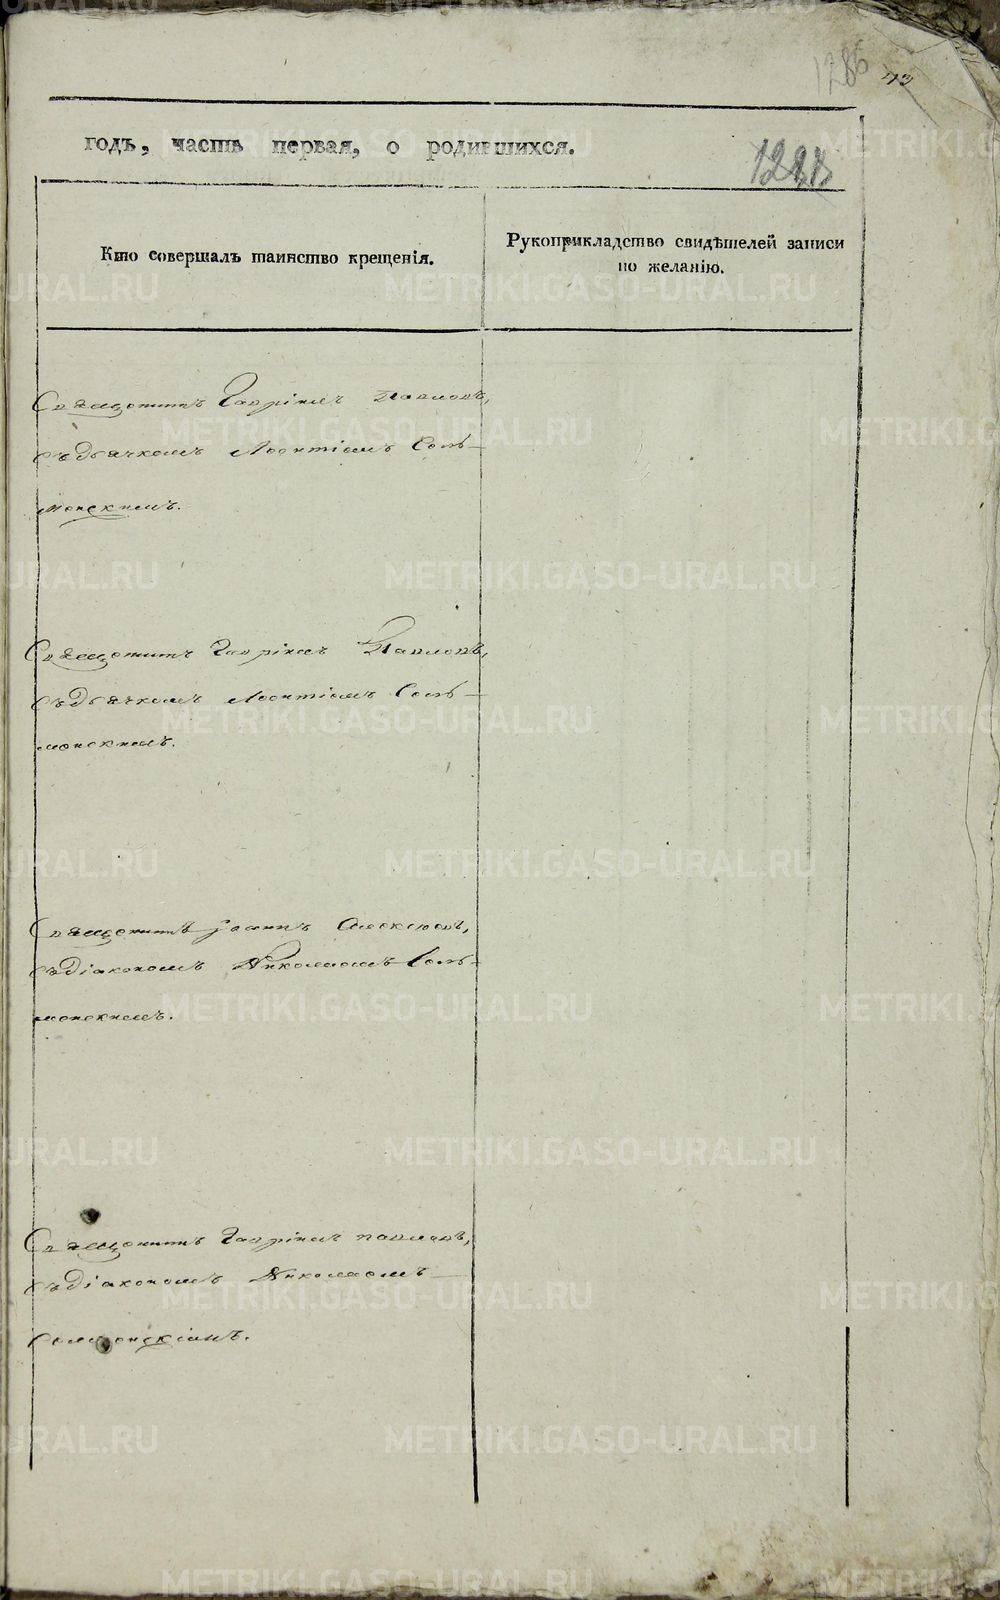 1286 43
годъ, часть первая, о родившихся.
Кто совершалъ таинство крещенія.
Рукоприкладство свидѣтелей записи
по желанію.
Священникъ Гавріилъ Павловъ,
съ дьячкомъ Леонтіемъ Сель-
менскимъ.
Священникъ Гавріилъ Павловъ,
съ дьячкомъ Леонтіемъ Сель-
менскимъ.
Священникъ Іоаннъ Алексіевъ,
съ діакономъ Николаемъ Сель-
менскимъ.
Священникъ Гавріилъ Павловъ,
съ діакономъ Николаемъ
Селменскіимъ.
METRIKI.GASO-URAL.RU